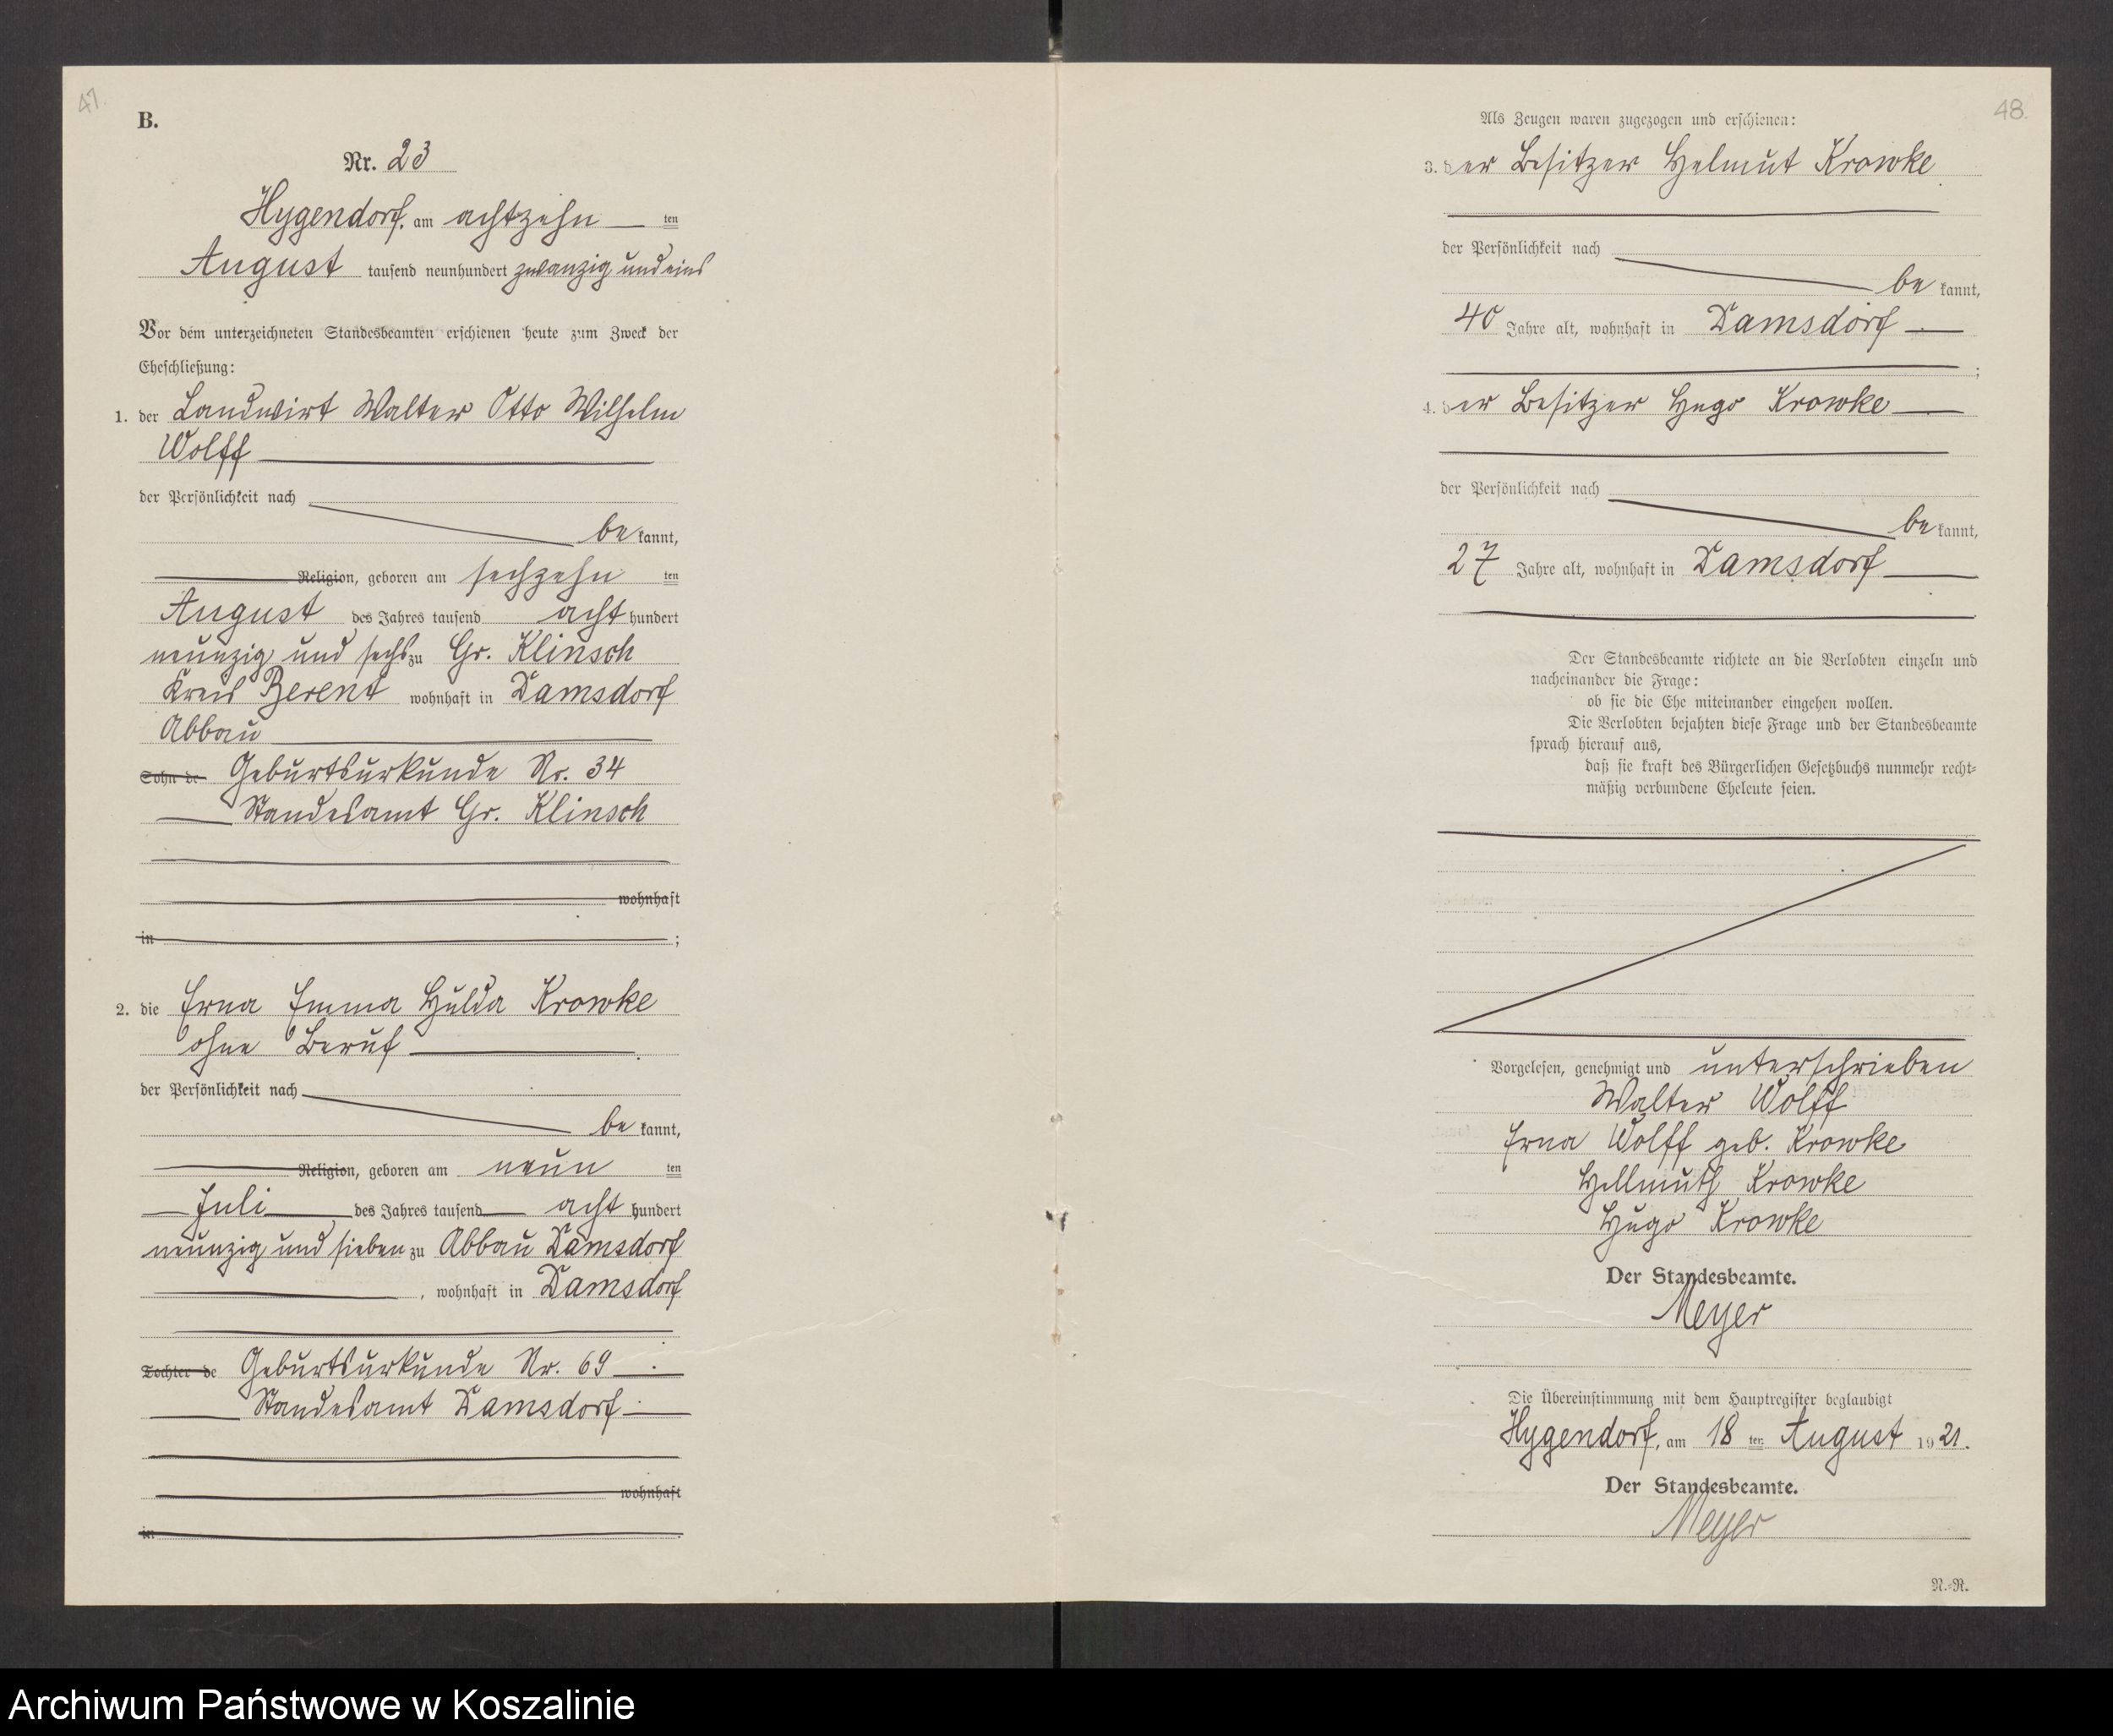 47.
B.
Nr. 23
Hygendorf, am achtzehn ten
August tausend neunhundert zwanzig und eins
Vor dem unterzeichneten Standesbeamten erschienen heute zum Zweck der
Eheschließung:
1. der Landwirt Walter Otto Wilhelm
Wolff
der Persönlichkeit nach
be kannt,
Religion, geboren am sechzehn ten
August des Jahres tausend acht hundert
neunzig und sechs zu Gr. Klinsch
Kreis Berent wohnhaft in Damsdorf
Abbau
Sohn de Geburtsurkunde Nr. 34
Standesamt Gr. Klinsch
wohnhaft
in ;
2. die Erna Emma Hulda Krowke
ohne Beruf
der Persönlichkeit nach
be kannt,
Religion, geboren am neun ten
Juli des Jahres tausend acht hundert
neunzig und sieben zu Abbau Damsdorf
, wohnhaft in Damsdorf
Tochter de Geburtsurkunde Nr. 69
Standesamt Damsdorf
wohnhaft
in
48.
Als Zeugen waren zugezogen und erschienen:
3. der Besitzer Helmut Krowke
der Persönlichkeit nach
be kannt,
40 Jahre alt, wohnhaft in Damsdorf
;
4. der Besitzer Hugo Krowke
der Persönlichkeit nach
be kannt,
27 Jahre alt, wohnhaft in Damsdorf
Der Standesbeamte richtete an die Verlobten einzeln und
nacheinander die Frage:
ob sie die Ehe miteinander eingehen wollen.
Die Verlobten bejahten diese Frage und der Standesbeamte
sprach hierauf aus,
daß sie kraft des Bürgerlichen Gesetzbuchs nunmehr recht-
mäßig verbundene Eheleute seien.
Vorgelesen, genehmigt und unterschrieben
Walter Wolff
Erna Wolff geb. Krowke
Hellmuth Krowke
Hugo Krowke
Der Standesbeamte.
Meyer
Die Übereinstimmung mit dem Hauptregister beglaubigt
Hygendorf, am 18 ten August 19 21.
Der Standesbeamte.
Meyer
N.-R.
Archiwum Państwowe w Koszalinie